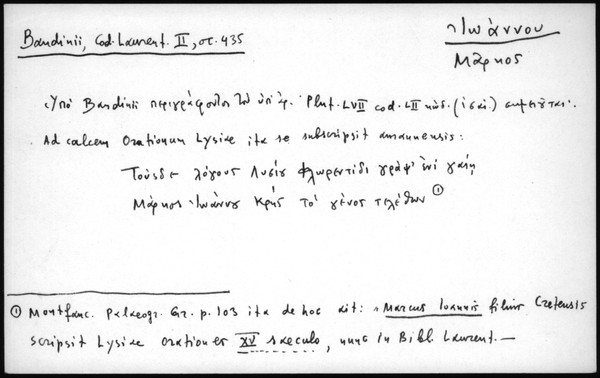 Bandinii, Cod. Laurent. II, σ. 435
Ἰωάννου
Μᾶρκος
Ὑπὸ Bandinii περιγράφοντος τὸν ὑπ' ἀρ. Plut. LVII cod. LII κώδ. (ις' αἰ.) σημειοῦται:
Ad calcem Orationum Lysiae ita se subscripsit amanuensis:
Τούσδε λόγους Λυσίου Φλωρεντίδι γράψ' ἐνὶ γαίῃ
Μάρκος Ἰωάννου Κρὴς τὸ γένος τελέθων ①
① Montfauc. Palaeogr. Gr. p. 103 ita de hoc ait: "Marcus Ioannis filius Cretensis
scripsit Lysiae orationes XV saeculo, nunc in Bibl. Laurent.—